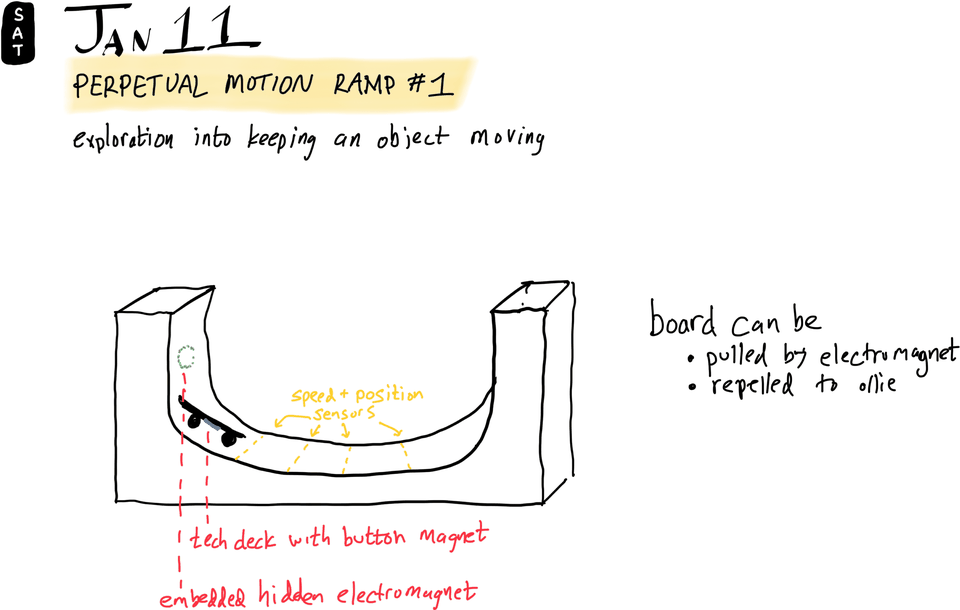 SAT
JAN 11
PERPETUAL MOTION RAMP #1
exploration into keeping an object moving
speed + position
sensors
board can be
• pulled by electromagnet
• repelled to ollie
tech deck with button magnet
embedded hidden electromagnet